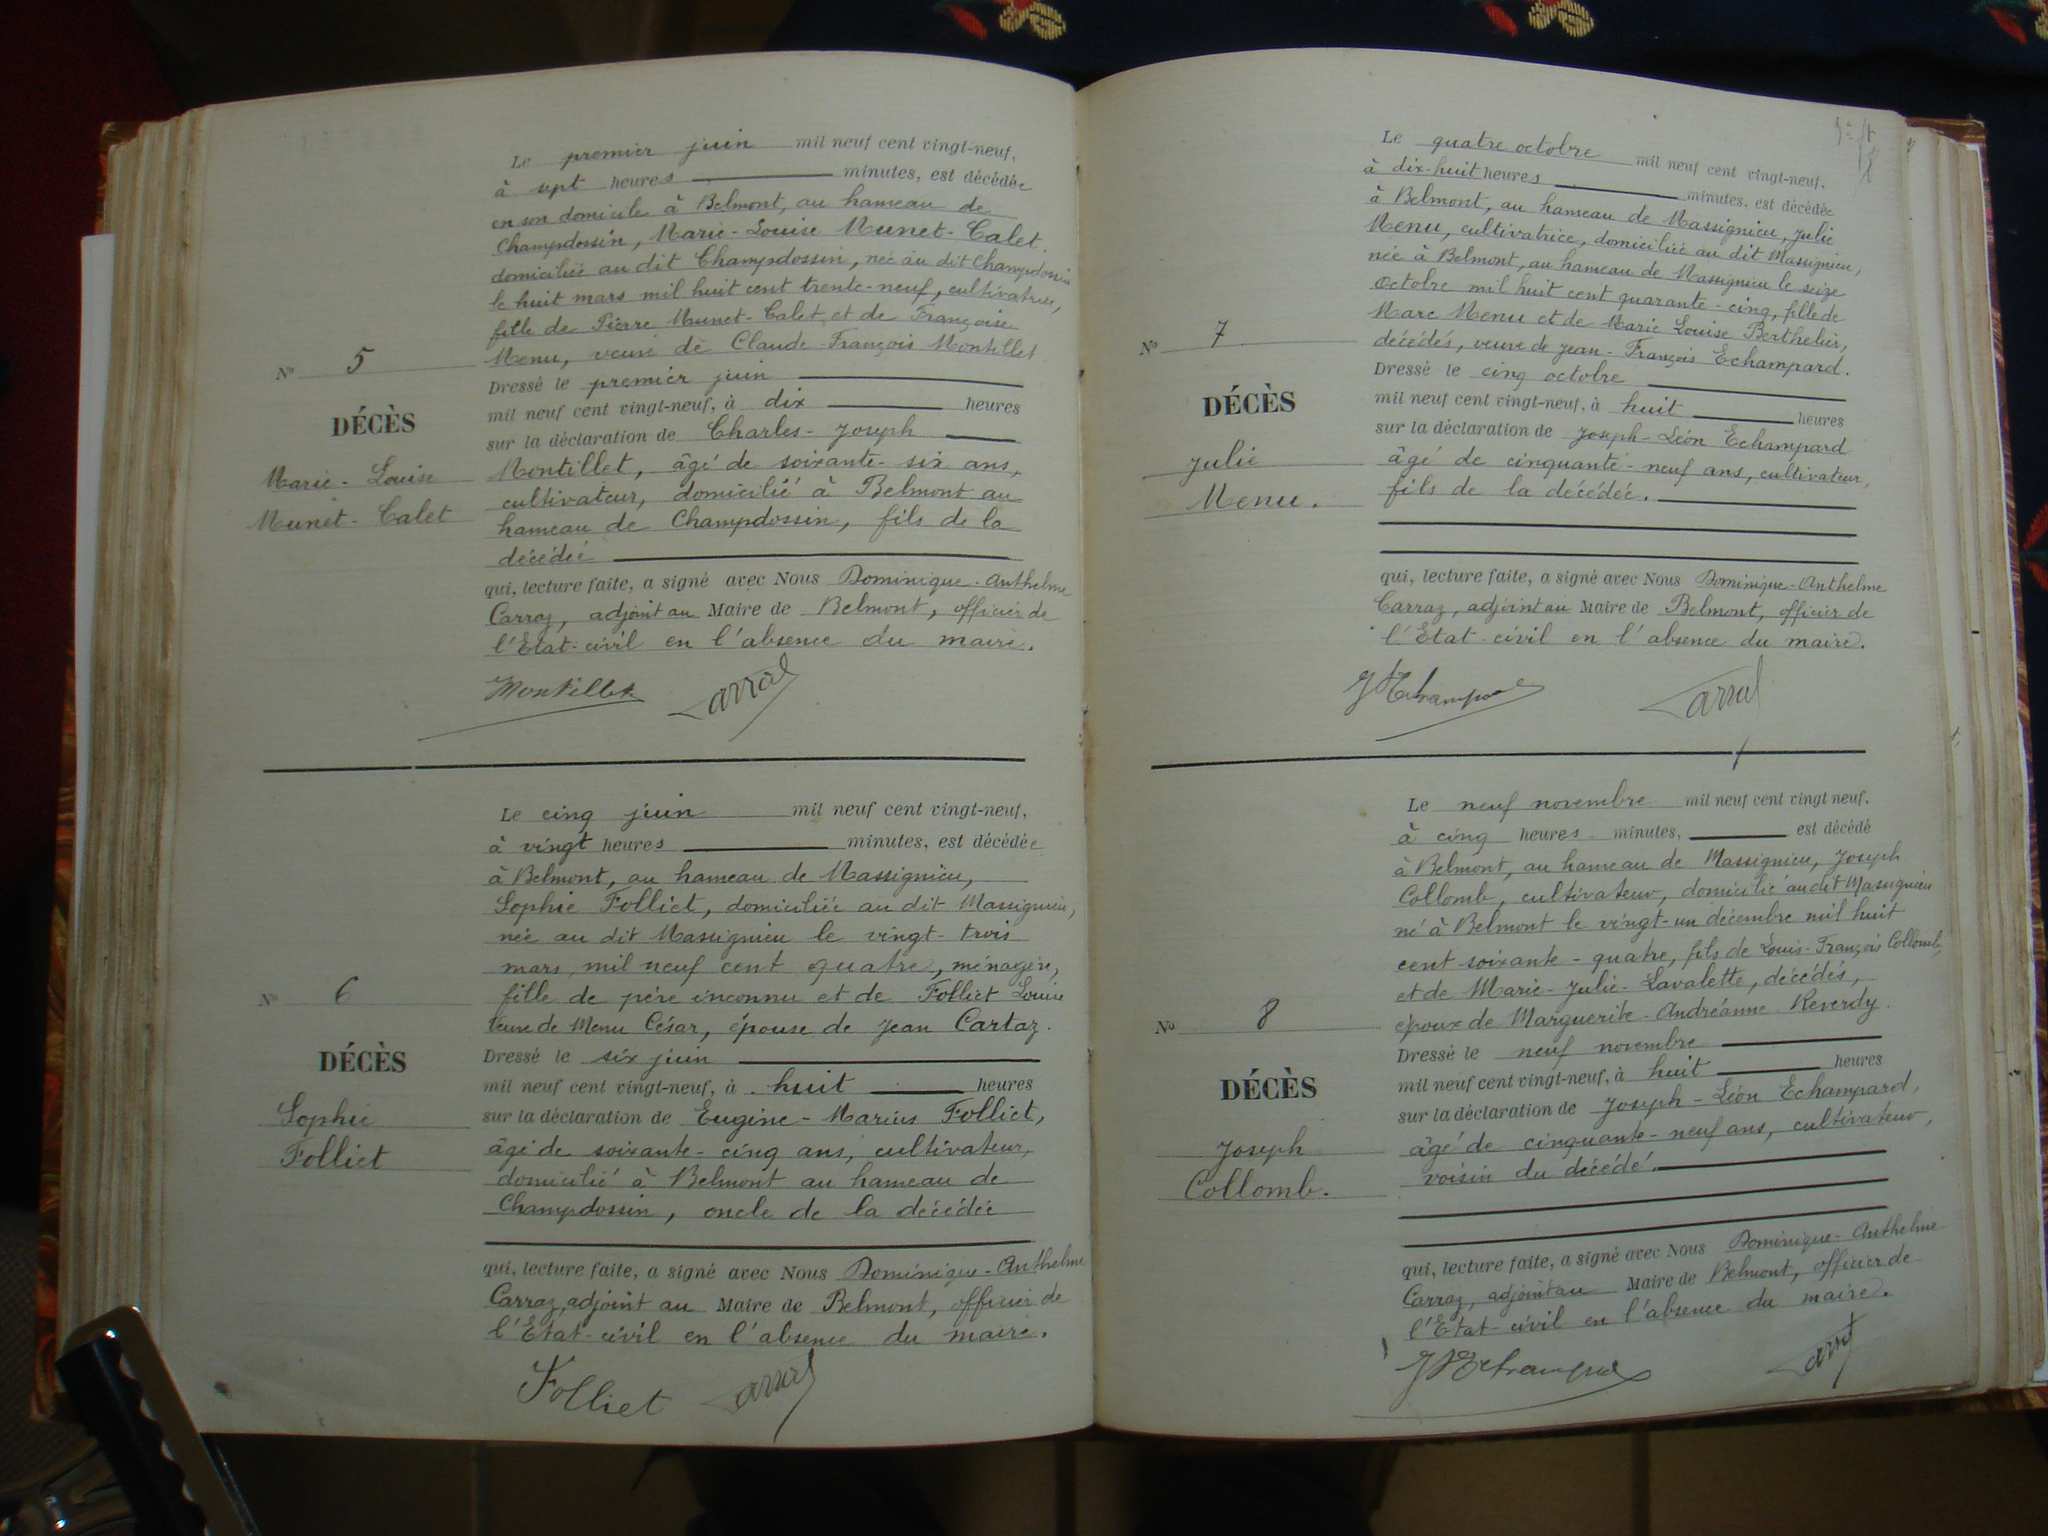 Le premier juin mil neuf cent vingt-neuf,
à sept heures minutes, est décédée
en son domicile à Belmont, au hameau de
Champdossin, Marie-Louise Munet-Calet
domiciliée au dit Champdossin, née au dit Champdossin
le huit mars mil huit cent trente-neuf, cultivatrice,
fille de Pierre Munet-Calet et de Françoise
Menu, veuve de Claude-François Montillet
Nº 5
DÉCÈS
Marie-Louise
Munet-Calet
Dressé le premier juin
mil neuf cent vingt-neuf, à dix heures
sur la déclaration de Charles-Joseph
Montillet, âgé de soixante-six ans,
cultivateur, domicilié à Belmont au
hameau de Champdossin, fils de la
décédée
qui, lecture faite, a signé avec Nous Dominique-Anthelme
Carraz, adjoint au Maire de Belmont, officier de
l'Etat-civil en l'absence du maire.
Montillet Carraz
Le cinq juin mil neuf cent vingt-neuf,
à vingt heures minutes, est décédée
à Belmont, au hameau de Massignieu,
Sophie Folliet, domiciliée au dit Massignieu,
née au dit Massignieu le vingt-trois
mars mil neuf cent quatre, ménagère,
fille de père inconnu et de Folliet Louise
veuve de Menu César, épouse de Jean Cartaz.
Nº 6
DÉCÈS
Sophie
Folliet
Dressé le six juin
mil neuf cent vingt-neuf, à huit heures
sur la déclaration de Eugène-Marius Folliet,
âgé de soixante-cinq ans, cultivateur,
domicilié à Belmont au hameau de
Champdossin, oncle de la décédée
qui, lecture faite, a signé avec Nous Dominique-Anthelme
Carraz, adjoint au Maire de Belmont, officier de
l'Etat-civil en l'absence du maire.
Folliet Carraz
Le quatre octobre mil neuf cent vingt-neuf,
à dix-huit heures minutes, est décédée
à Belmont, au hameau de Massignieu, Julie
Menu, cultivatrice, domiciliée au dit Massignieu,
née à Belmont, au hameau de Massignieu le seize
Octobre mil huit cent quarante-cinq, fille de
Marc Menu et de Marie Louise Berthelier,
décédés, veuve de Jean-François Echampard.
Nº 7
DÉCÈS
Julie
Menu.
Dressé le cinq octobre
mil neuf cent vingt-neuf, à huit heures
sur la déclaration de Joseph-Léon Echampard
âgé de cinquante-neuf ans, cultivateur,
fils de la décédée.
qui, lecture faite, a signé avec Nous Dominique-Anthelme
Carraz, adjoint au Maire de Belmont, officier de
l'Etat-civil en l'absence du maire.
Carraz
Le neuf novembre mil neuf cent vingt neuf,
à cinq heures minutes, est décédé
à Belmont, au hameau de Massignieu, Joseph
Collomb, cultivateur, domicilié au dit Massignieu
né à Belmont le vingt-un décembre mil huit
cent soixante-quatre, fils de Louis-François Collomb,
et de Marie-Julie-Lavalette, décédés,
époux de Marguerite-Andréanne Reverdy.
Nº 8
DÉCÈS
Joseph
Collomb.
Dressé le neuf novembre
mil neuf cent vingt-neuf, à huit heures
sur la déclaration de Joseph-Léon Echampard,
âgé de cinquante-neuf ans, cultivateur,
voisin du décédé.
qui, lecture faite, a signé avec Nous Dominique-Anthelme
Carraz, adjoint au Maire de Belmont, officier de
l'Etat-civil en l'absence du maire.
Carraz